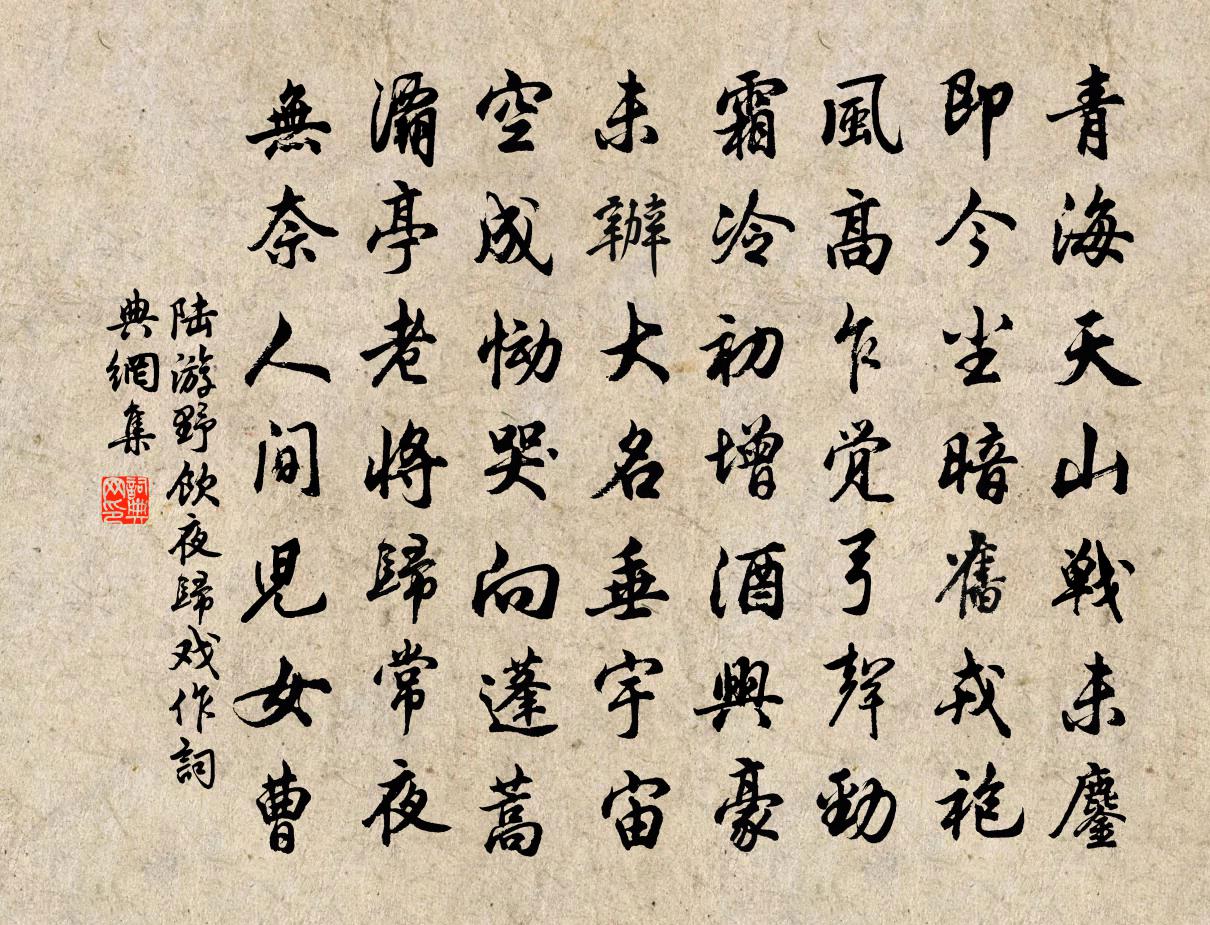 青海天山戦未鏖
即今尘暗舊戎袍
風高乍覺弓聲勁
霜冷初增酒興豪
未辦大名垂宇宙
空成慟哭向蓬蒿
灞亭老將歸常夜
無奈人間兒女曹
陆游野飲夜歸戏作詞
典網集
詞典网印